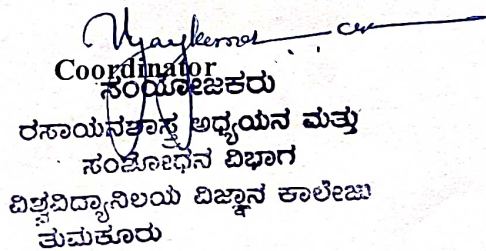 Coordinator
ಸಂಯೋಜಕರು
ರಸಾಯನಶಾಸ್ತ್ರ ಅಧ್ಯಯನ ಮತ್ತು
ಸಂಶೋಧನ ವಿಭಾಗ
ವಿಶ್ವವಿದ್ಯಾನಿಲಯ ವಿಜ್ಞಾನ ಕಾಲೇಜು
ತುಮಕೂರು